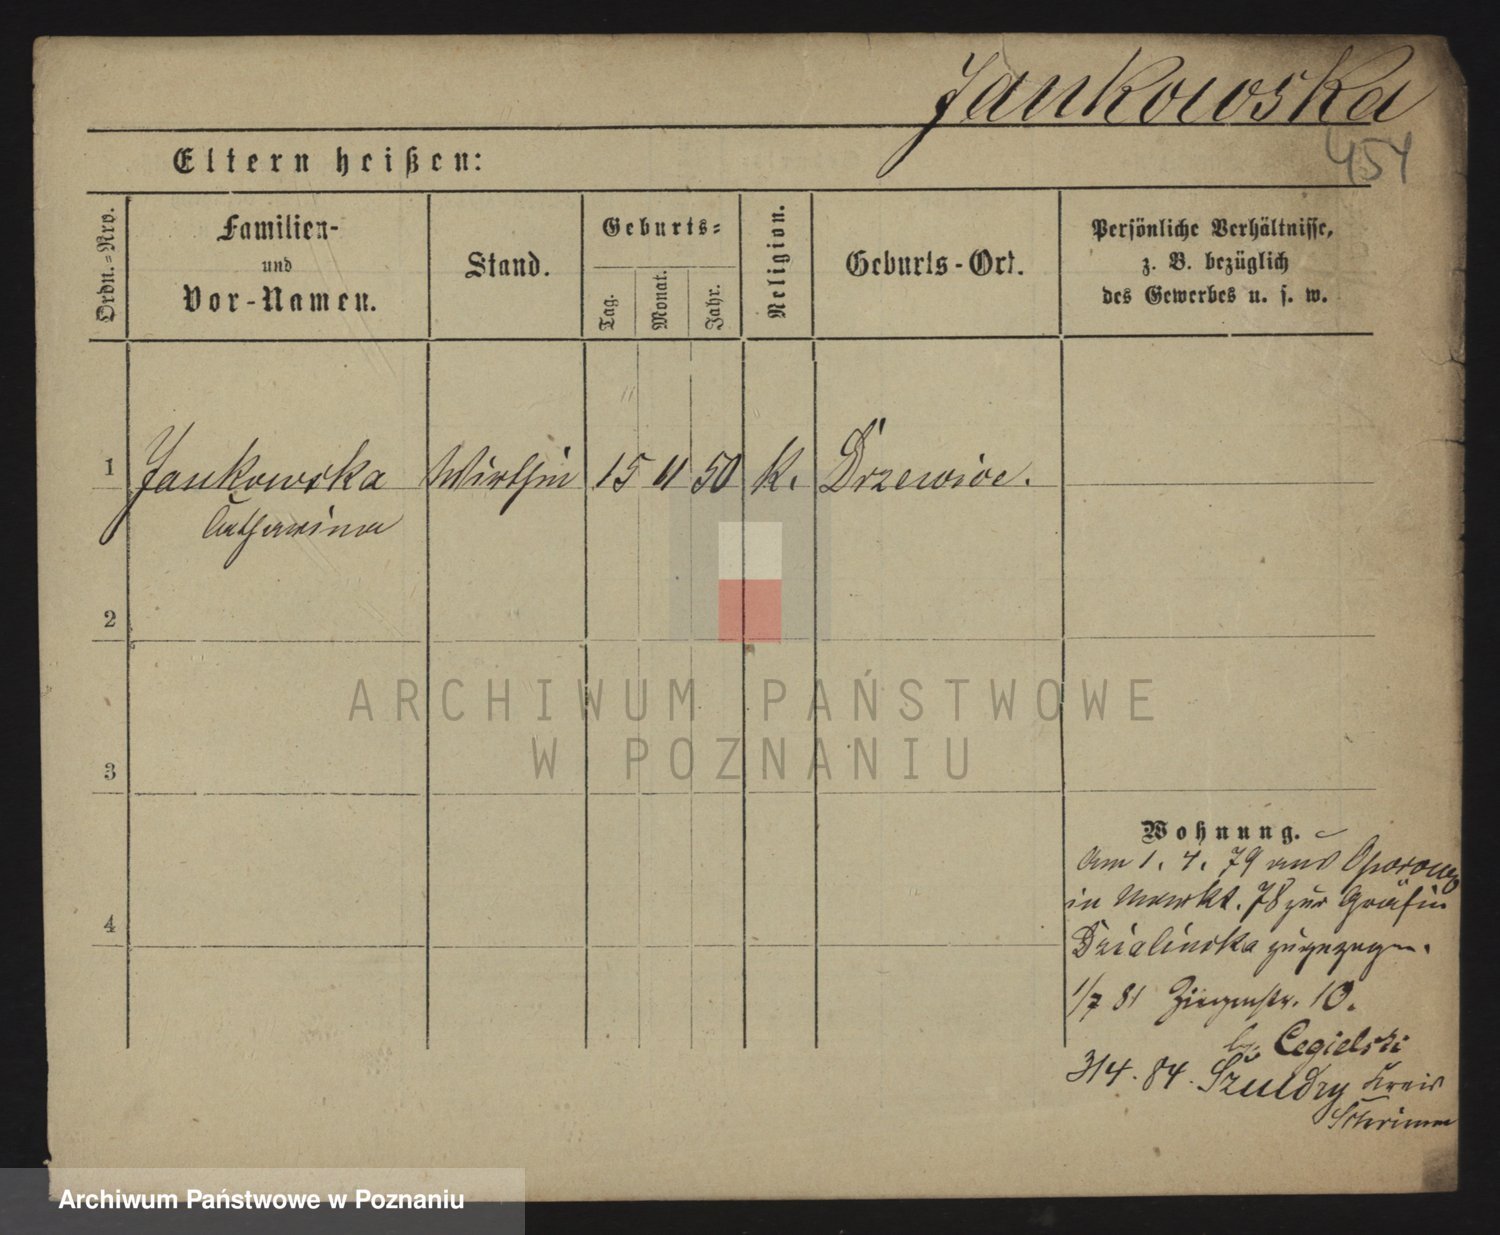 Jankowska
454
Eltern heißen:
Ordn.=Nro.
Familien-
und
Vor-Namen.
Stand.
Geburts=
Tag.
Monat.
Jahr.
Religion.
Geburts-Ort.
Persönliche Verhältnisse,
z. B. bezüglich
des Gewerbes u. s. w.
1 Jankowska Wirthin 15 11 50 k. Drzewice.
Catharina
2
ARCHIWUM PAŃSTWOWE
W POZNANIU
3
Wohnung.
Am 1. 4. 79 aus Oporowo
in Markt. 78 zur Gräfin
4
Dzialinska zugezogen.
1/7 81 Ziegenstr. 10.
b. Cegielski
3/4. 84. Szuldry Kreis
Schrimm
Archiwum Państwowe w Poznaniu